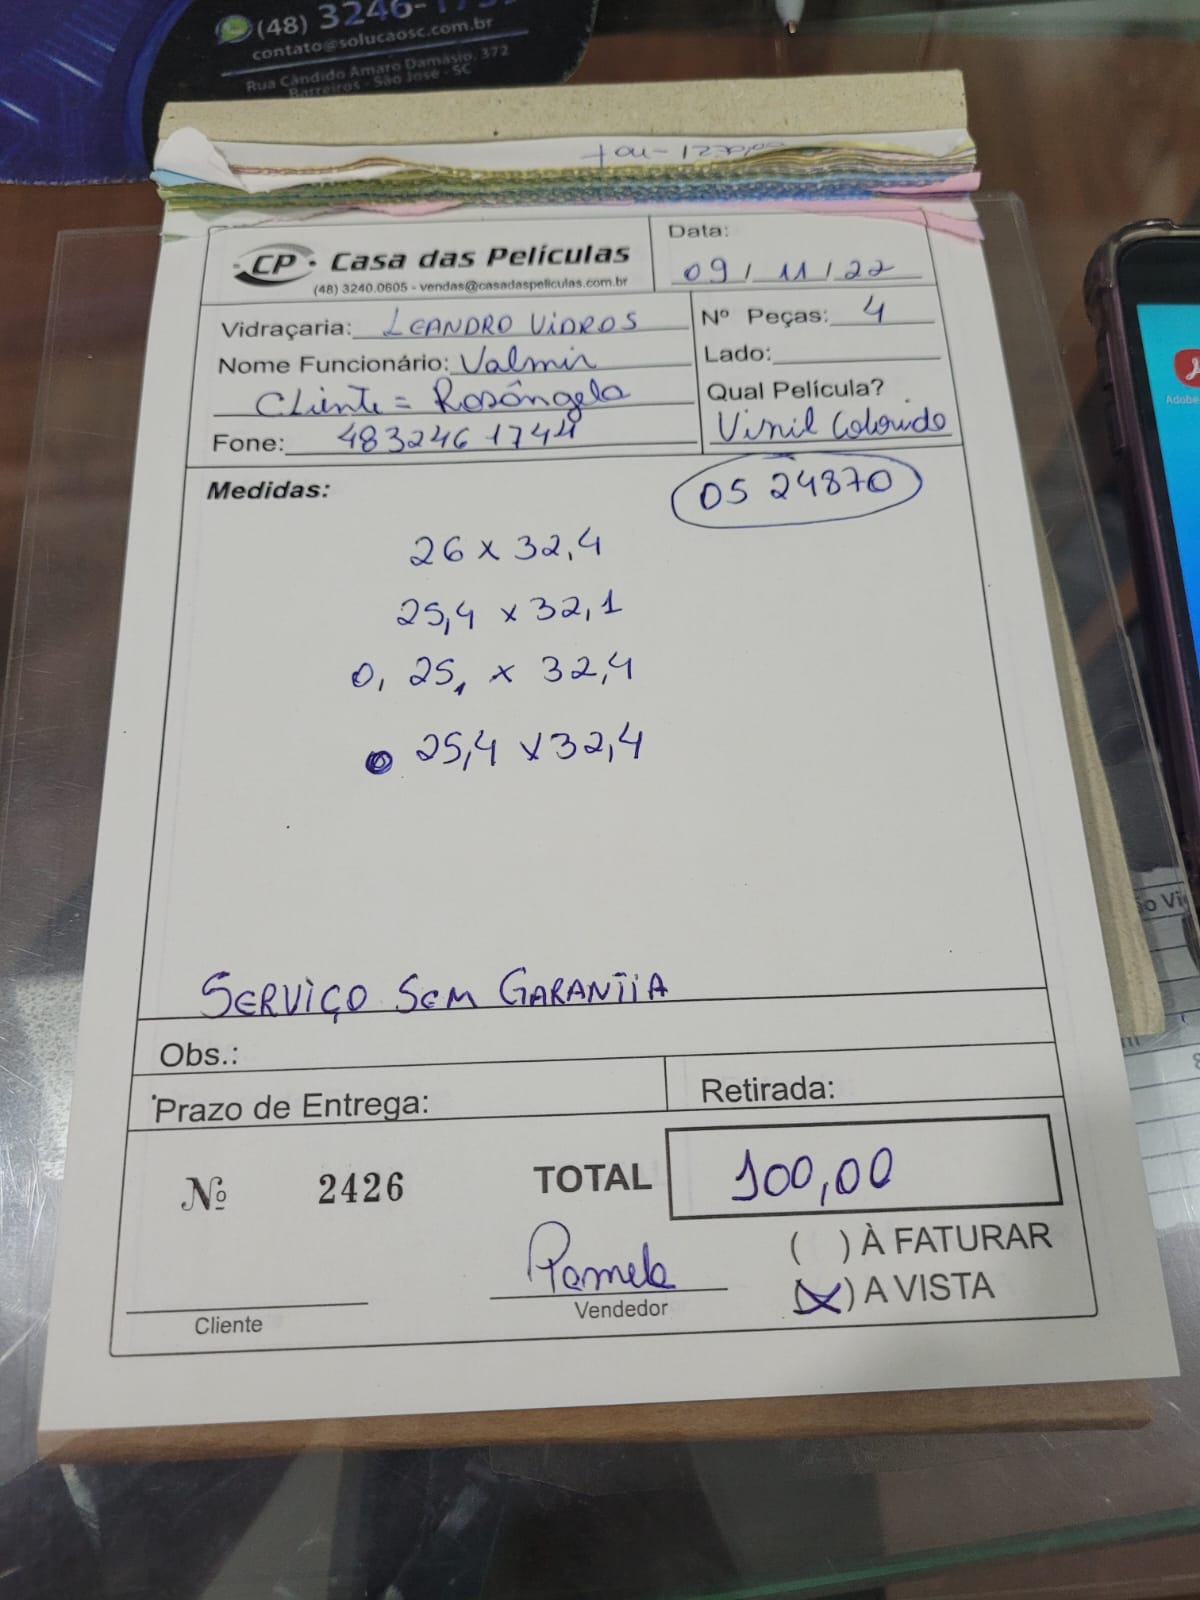 (48) 3246-1
contato@solucaosc.com.br
Rua Cândido Amaro Damásio, 372
Barreiros - São José - SC
CP Casa das Películas
(48) 3240.0605 - vendas@casadaspeliculas.com.br
Data:
09/11/22
Vidraçaria: LEANDRO VIDROS
Nº Peças: 4
Nome Funcionário: Valmir
Lado:
Cliente = Rosângela
Qual Película?
Vinil Colorido
Fone: 483246 1744
Medidas:
OS 24870
26 x 32,4
25,4 x 32,1
0, 25, x 32,4
25,4 x 32,4
SERVIÇO SEM GARANTIA
Obs.:
Prazo de Entrega:
Retirada:
Nº 2426
TOTAL 100,00
( ) À FATURAR
Pamela
(X) A VISTA
Vendedor
Cliente
Adobe